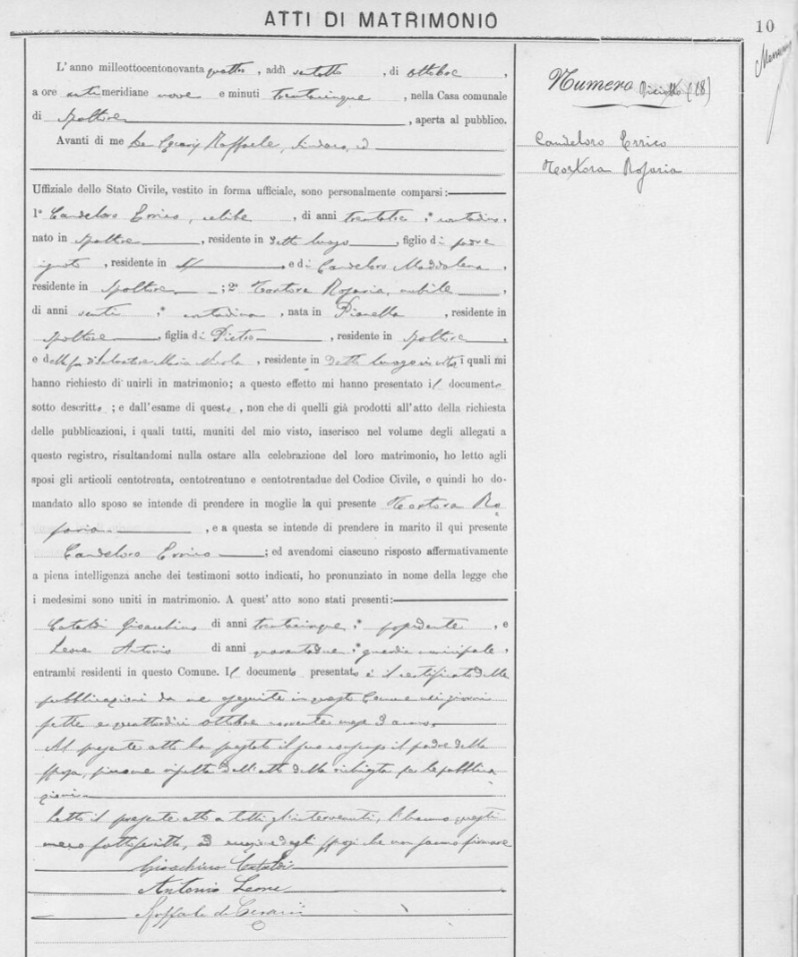 ATTI DI MATRIMONIO
10
L'anno milleottocentonovanta quattro, addì ventotto, di ottobre,
a ore antimeridiane nove e minuti trentacinque, nella Casa comunale
di Spoltore, aperta al pubblico.
Avanti di me Raffaele, Sindaco, ed
Uffiziale dello Stato Civile, vestito in forma ufficiale, sono personalmente comparsi:
1º Candeloro Errico, celibe, di anni, contadino,
nato in Spoltore, residente in detto luogo, figlio di padre
ignoto, residente in, e di Candeloro Maddalena,
residente in Spoltore; 2º Tortora Rosaria, nubile,
di anni venti, contadina, nata in Pianella, residente in
Spoltore, figlia di Pietro, residente in Spoltore,
e della fu Maria Nicola, residente in detto luogo in vita i quali mi
hanno richiesto di unirli in matrimonio; a questo effetto mi hanno presentato il documento
sotto descritto; e dall'esame di questo, non che di quelli già prodotti all'atto della richiesta
delle pubblicazioni, i quali tutti, muniti del mio visto, inserisco nel volume degli allegati a
questo registro, risultandomi nulla ostare alla celebrazione del loro matrimonio, ho letto agli
sposi gli articoli centotrenta, centotrentuno e centotrentadue del Codice Civile, e quindi ho do-
mandato allo sposo se intende di prendere in moglie la qui presente Tortora Ro
saria, e a questa se intende di prendere in marito il qui presente
Candeloro Errico; ed avendomi ciascuno risposto affermativamente
a piena intelligenza anche dei testimoni sotto indicati, ho pronunziato in nome della legge che
i medesimi sono uniti in matrimonio. A quest'atto sono stati presenti:
Cataldi Gioacchino di anni trentacinque, possidente, e
Leone Antonio di anni quarantadue, guardia municipale,
entrambi residenti in questo Comune. Il documento presentato è il certificato delle
pubblicazioni da me eseguite in questo Comune nei giorni
sette e quattordici ottobre corrente mese ed anno.
Al presente atto ha prestato il suo consenso il padre della
sposa, dell'atto della richiesta per le pubblica
zioni
Letto il presente atto a tutti gl'intervenuti, l'hanno questi
meco sottoscritto, ad eccezione degli sposi che non sanno firmare
Gioacchino Cataldi
Antonio Leone
Raffaele
Numero Diciotto (18)
Candeloro Errico
Tortora Rosaria